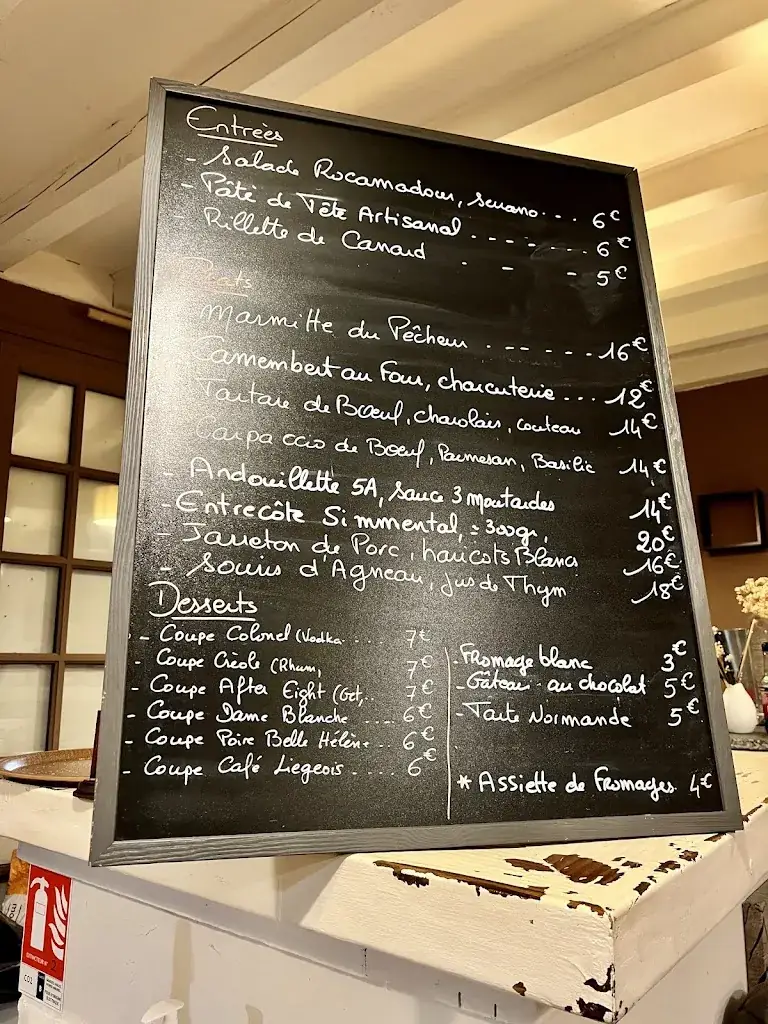 Entrées
- Salade Rocamadour, serrano... 6€
- Pâté de Tête Artisanal ------ 6€
- Rillette de Canard - - - 5€
Plats
Marmitte du Pêcheur . ----- 16€
Camembert au Four, charcuterie... 12€
Tartare de Bœuf, charolais, couteau 14€
Carpaccio de Boeuf, Parmesan, Basilic 14€
- Andouillette 5A, sauce 3 moutardes 14€
- Entrecôte Simmental, ± 300gr, 20€
- Jarreton de Porc, haricots Blancs 16€
- Souris d'Agneau, jus de Thym 18€
Desserts
- Coupe Colonel (Vodka.... 7€
- Coupe Créole (Rhum, 7€
- Coupe After Eight (Get,.. 7€
- Coupe Dame Blanche .... 6€
- Coupe Poire Belle Hélène.. 6€
- Coupe Café Liegeois.... 6€
- Fromage blanc 3€
- Gâteau au chocolat 5€
- Tarte Normande 5€
* Assiette de Fromages. 4€
EXTINCTEUR N°
CO2